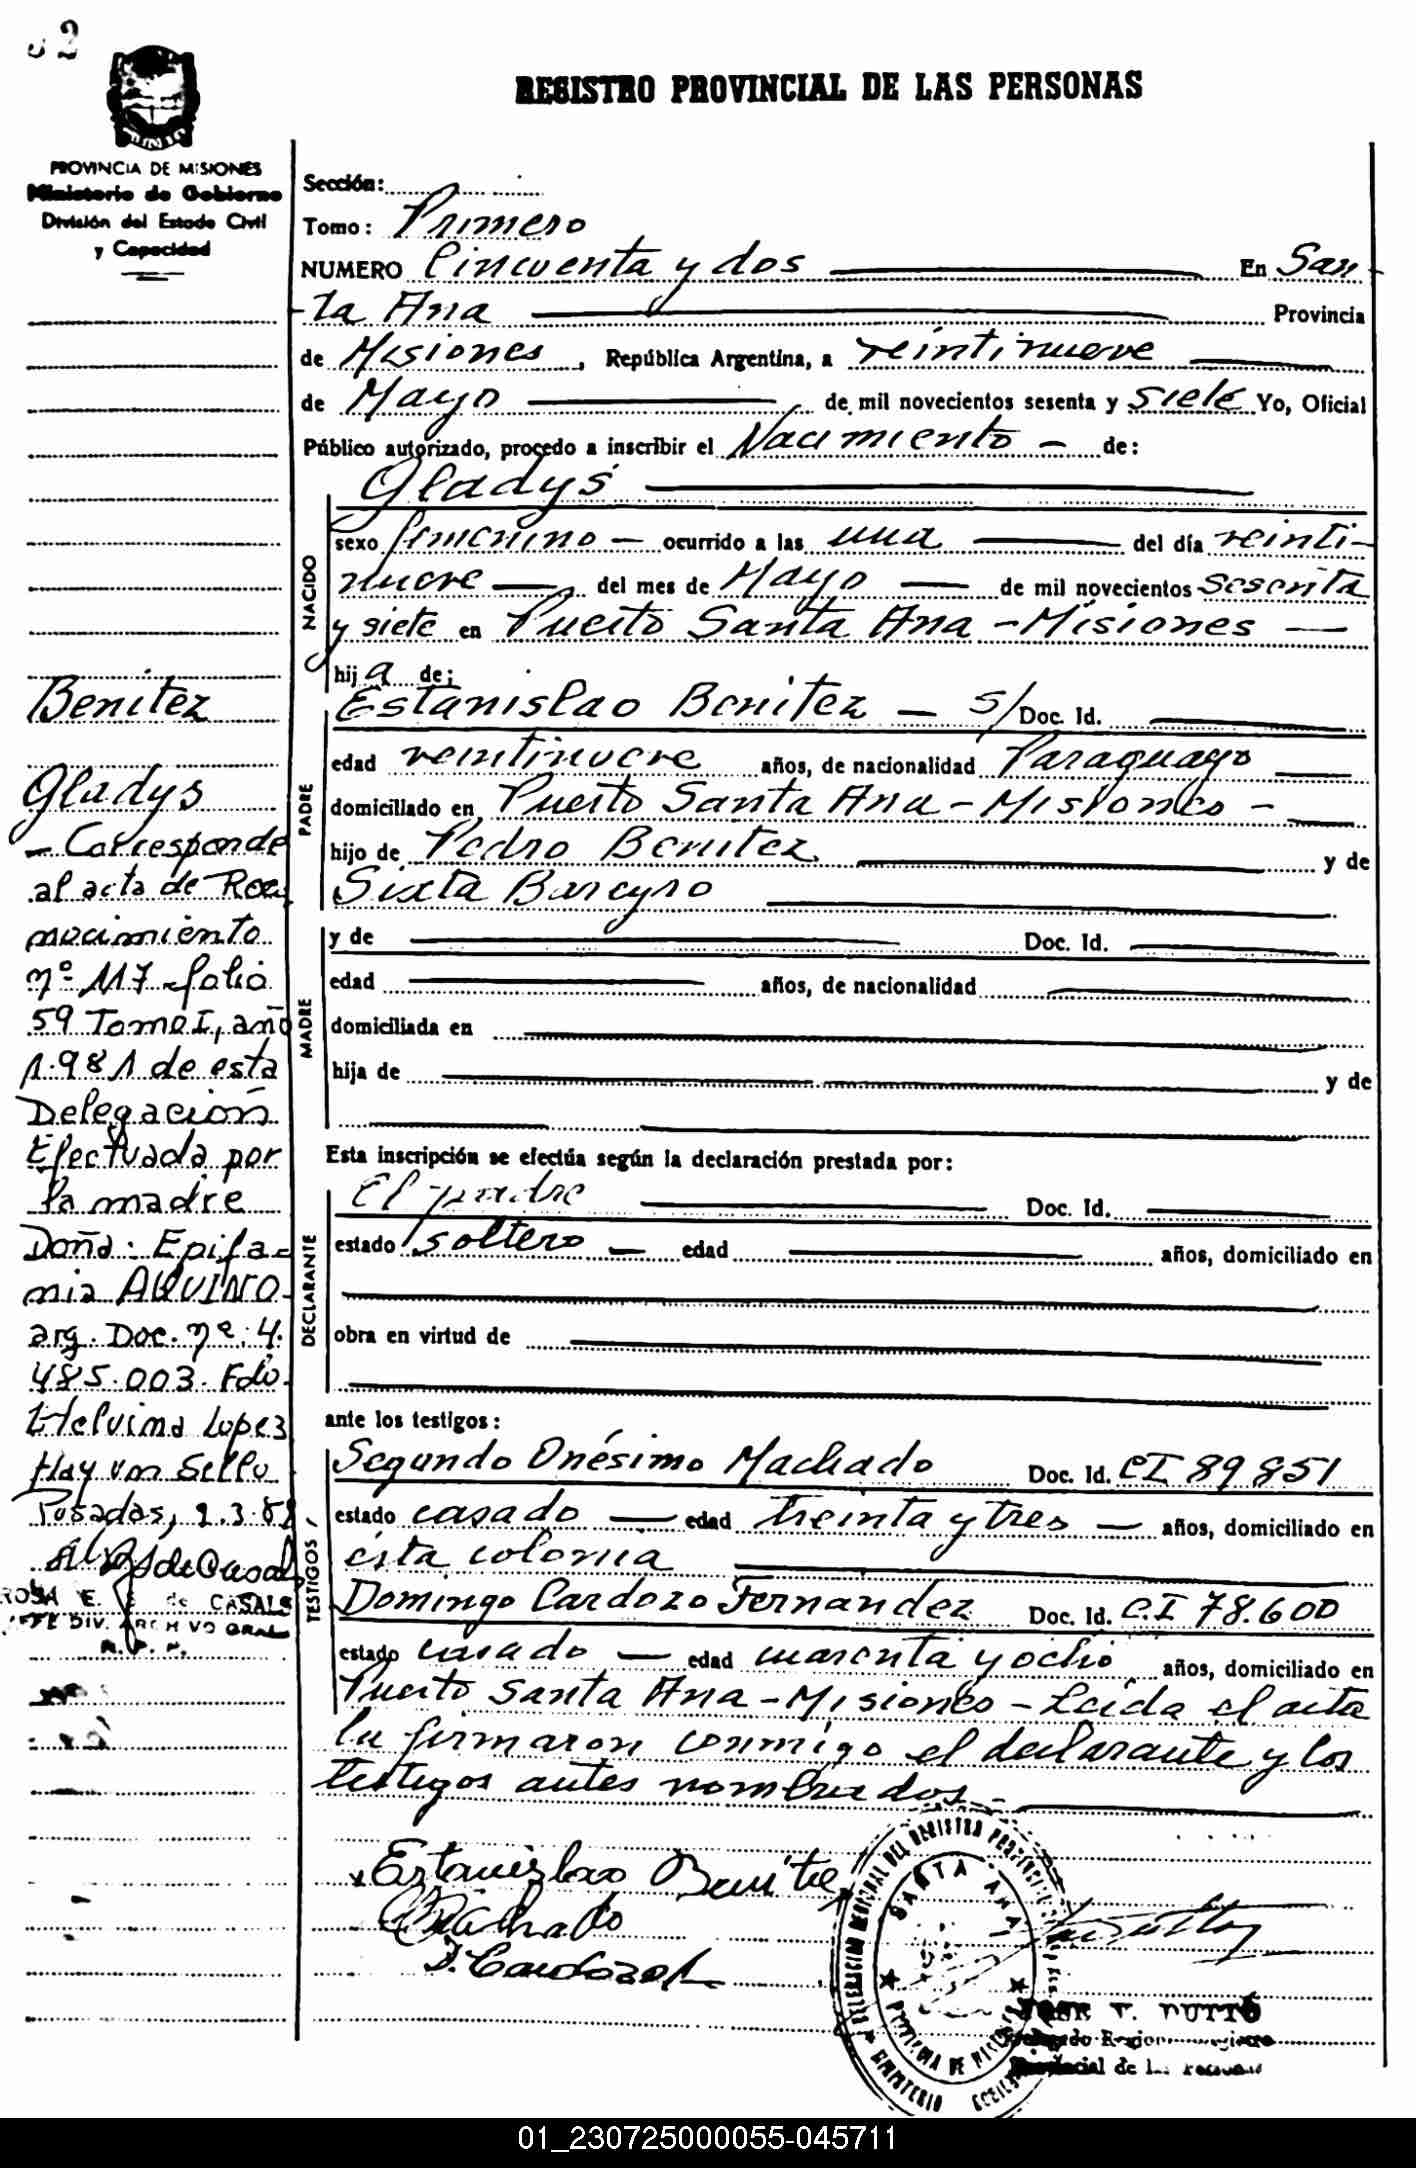 52
REGISTRO PROVINCIAL DE LAS PERSONAS
PROVINCIA DE MISIONES
Ministerio de Gobierno
División del Estado Civil
y Capacidad
Benitez
Gladys
- Corresponde
al acta de Reco
nocimiento
nº 117 folio
59 Tomo I, año
1.981 de esta
Delegación
Efectuada por
la madre
Doña: Epifa-
nia AQUINO
arg. Doc. nº: 4.
485.003. Fdo.
Helvima Lopez
Hay un Sello
Posadas, 9.3.82
ROSA E. S. de CASALS
JEFE DIV. ARCHIVO GRAL
R. P. P.
Sección:
Tomo: Primero
NUMERO Cincuenta y dos En San-
ta Ana Provincia
de Misiones, República Argentina, a veintinueve
de Mayo de mil novecientos sesenta y siete Yo, Oficial
Público autorizado, procedo a inscribir el Nacimiento - de:
Gladys
NACIDO
sexo femenino - ocurrido a las una del día veinti-
nueve - del mes de Mayo - de mil novecientos sesenta
y siete en Puerto Santa Ana - Misiones -
hija de:
PADRE
Estanislao Benitez - s/ Doc. Id.
edad veintinueve años, de nacionalidad Paraguayo
domiciliado en Puerto Santa Ana - Misiones -
hijo de Pedro Benitez y de
Sixta Bareyro
MADRE
y de Doc. Id.
edad años, de nacionalidad
domiciliada en
hija de y de
Esta inscripción se efectúa según la declaración prestada por:
DECLARANTE
El padre Doc. Id.
estado soltero - edad años, domiciliado en
obra en virtud de
ante los testigos:
TESTIGOS
Segundo Onésimo Machado Doc. Id. CI 89851
estado casado - edad treinta y tres - años, domiciliado en
esta colonia
Domingo Cardozo Fernandez Doc. Id. C.I 78.600
estado casado - edad cuarenta y ocho años, domiciliado en
Puerto Santa Ana - Misiones - Leída el acta
la firmaron conmigo el declarante y los
testigos antes nombrados.-
x Estanislao Benitez
Machado
D. Cardozo
DELEGACION REGIONAL DEL REGISTRO PROVINCIAL
SANTA ANA
PROVINCIA DE MISIONES
MINISTERIO GOBIERNO
JOSE V. DUTTO
Delegado Regional Registro
Provincial de las Personas
01_230725000055-045711